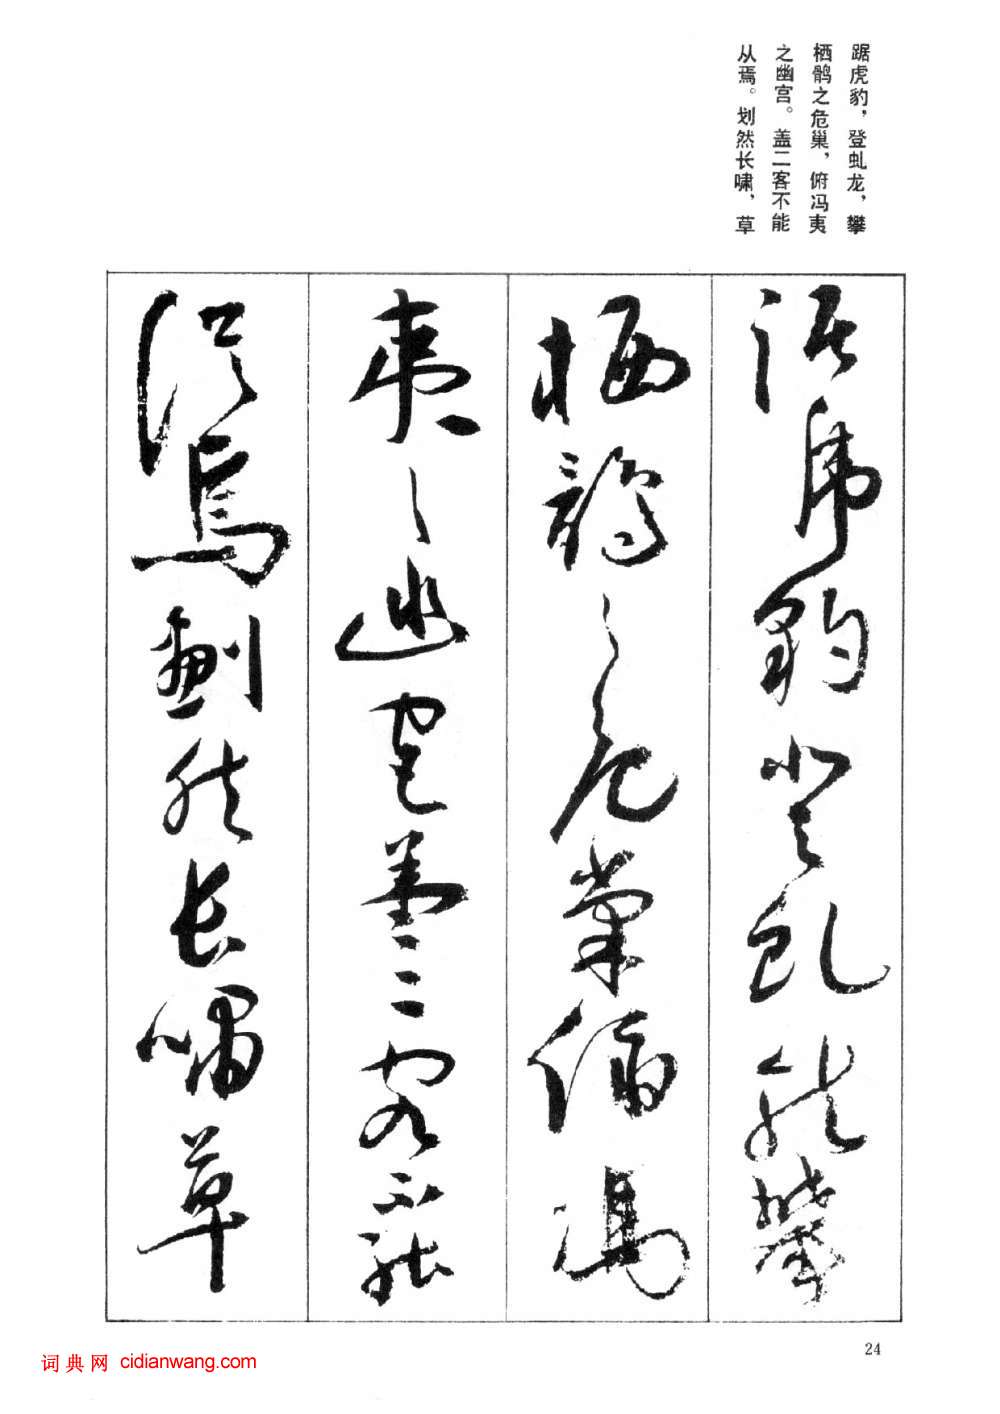 踞虎豹，登虬龙，攀
栖鹘之危巢，俯冯夷
之幽宫。盖二客不能
从焉。划然长啸，草
踞虎豹登虬龙攀
栖鹘之危巢俯冯
夷之幽宫盖二客不能
从焉划然长啸草
24
词典网 cidianwang.com